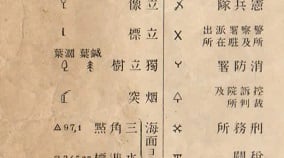 憲兵隊
警察署派出
及駐在所所
消防署
控訴院及
裁判所
刑務所
税關
立像
立標
獨立樹
鍼葉 濶葉
烟突
海面ヨ
三角點 △97,1